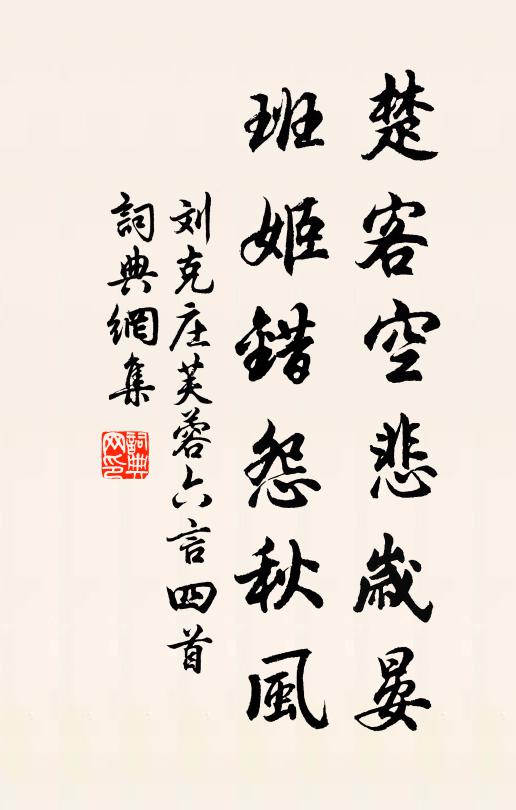 楚客空悲歲晏
班姬錯怨秋風
刘克庄芙蓉六言四首
詞典網集
詞典网印